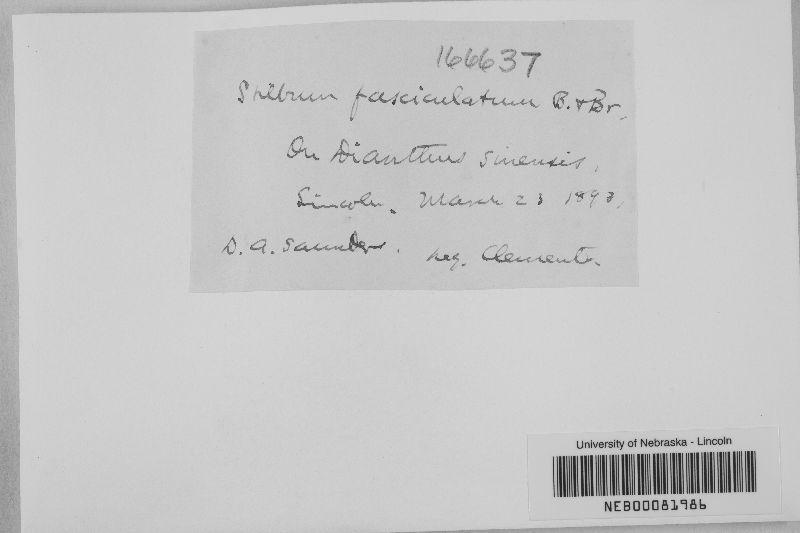 166637
Stilbum fasciculatum B. & Br.
On Dianthus sinensis,
Lincoln. March 23 1893,
D. A. Saunders. Leg. Clements.
University of Nebraska - Lincoln
NEB00081986